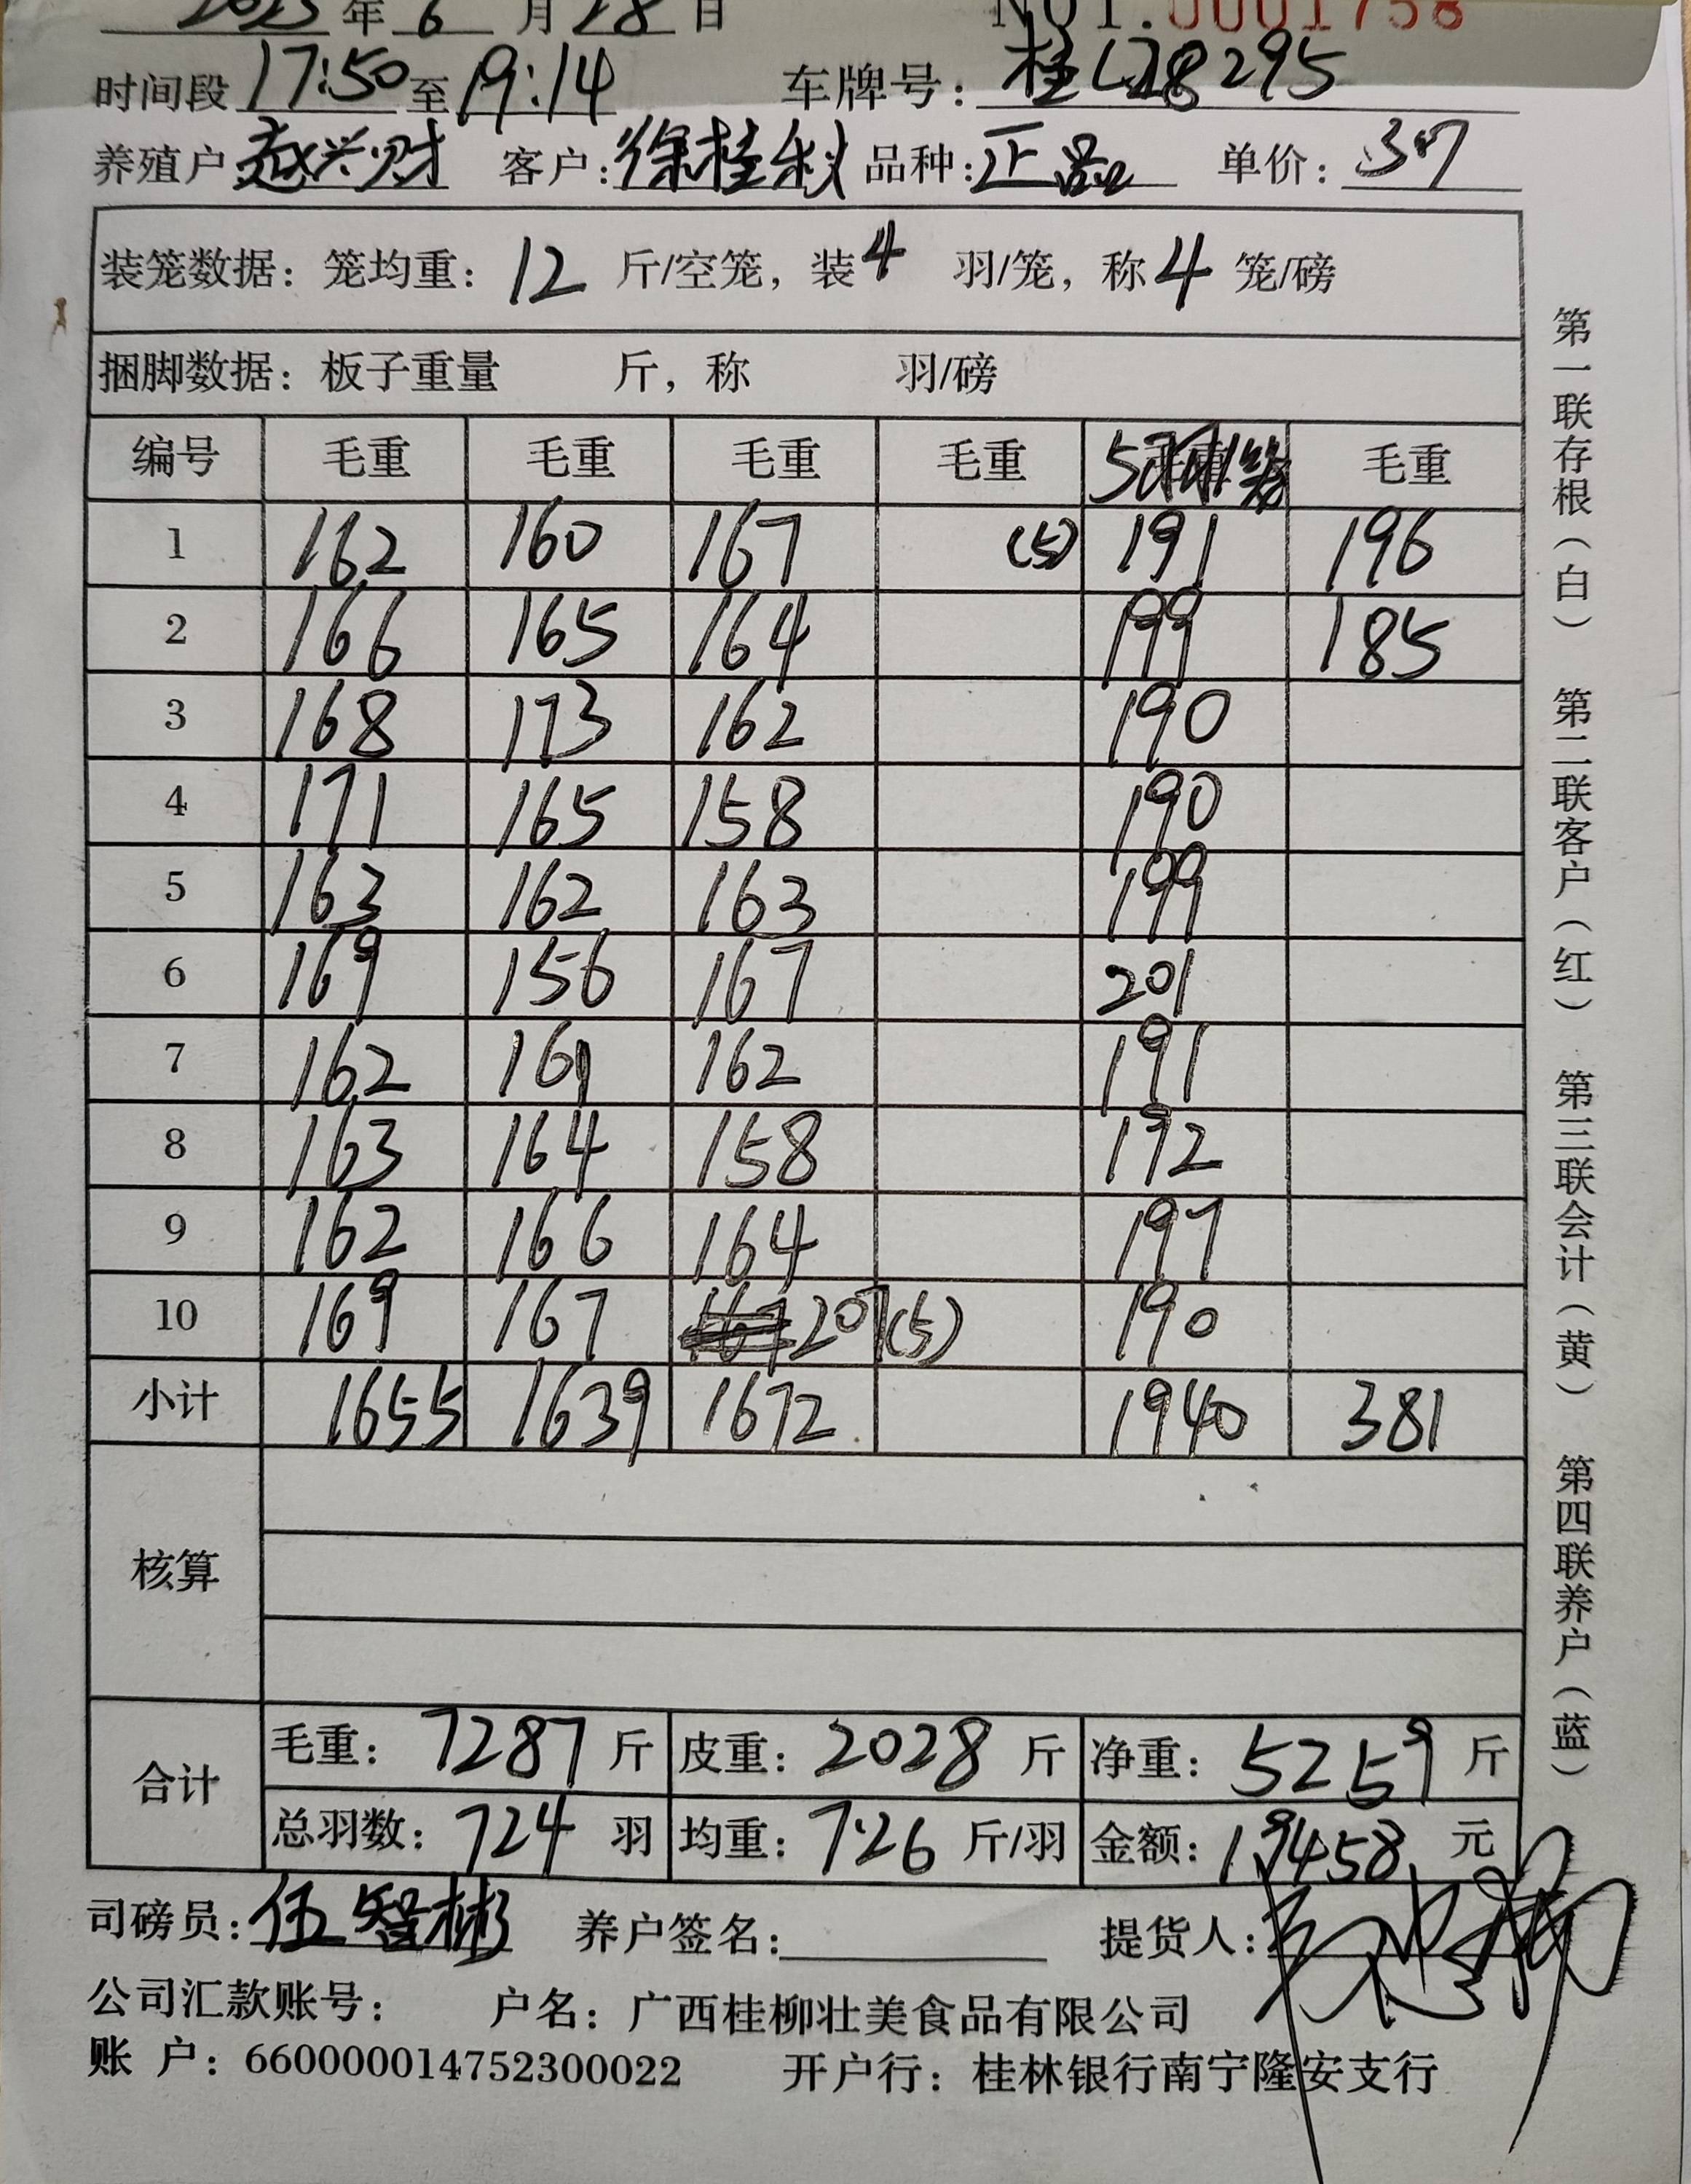 2023 年 6 月 28 日 NO1.0001758
时间段 17:50 至 19:14 车牌号: 桂L 8295
养殖户 赵兴财 客户: 徐桂秋 品种: 正品 单价: 3.7
装笼数据: 笼均重: 12 斤/空笼, 装 4 羽/笼, 称 4 笼/磅
捆脚数据: 板子重量 斤, 称 羽/磅
编号 毛重 毛重 毛重 毛重 毛重
1 162 160 167 (5) 191 196
2 166 165 164 199 185
3 168 173 162 190
4 171 165 158 190
5 163 162 163 199
6 169 156 167 201
7 162 161 162 191
8 163 164 158 192
9 162 166 164 197
10 169 167 207(5) 190
小计 1655 1639 1672 1940 381
核算
合计
毛重: 7287 斤 皮重: 2028 斤 净重: 5259 斤
总羽数: 724 羽 均重: 7.26 斤/羽 金额: 19458 元
司磅员: 伍智彬 养户签名: 提货人:
公司汇款账号: 户名: 广西桂柳壮美食品有限公司
账 户: 660000014752300022 开户行: 桂林银行南宁隆安支行
第一联存根(白) 第二联客户(红) 第三联会计(黄) 第四联养户(蓝)